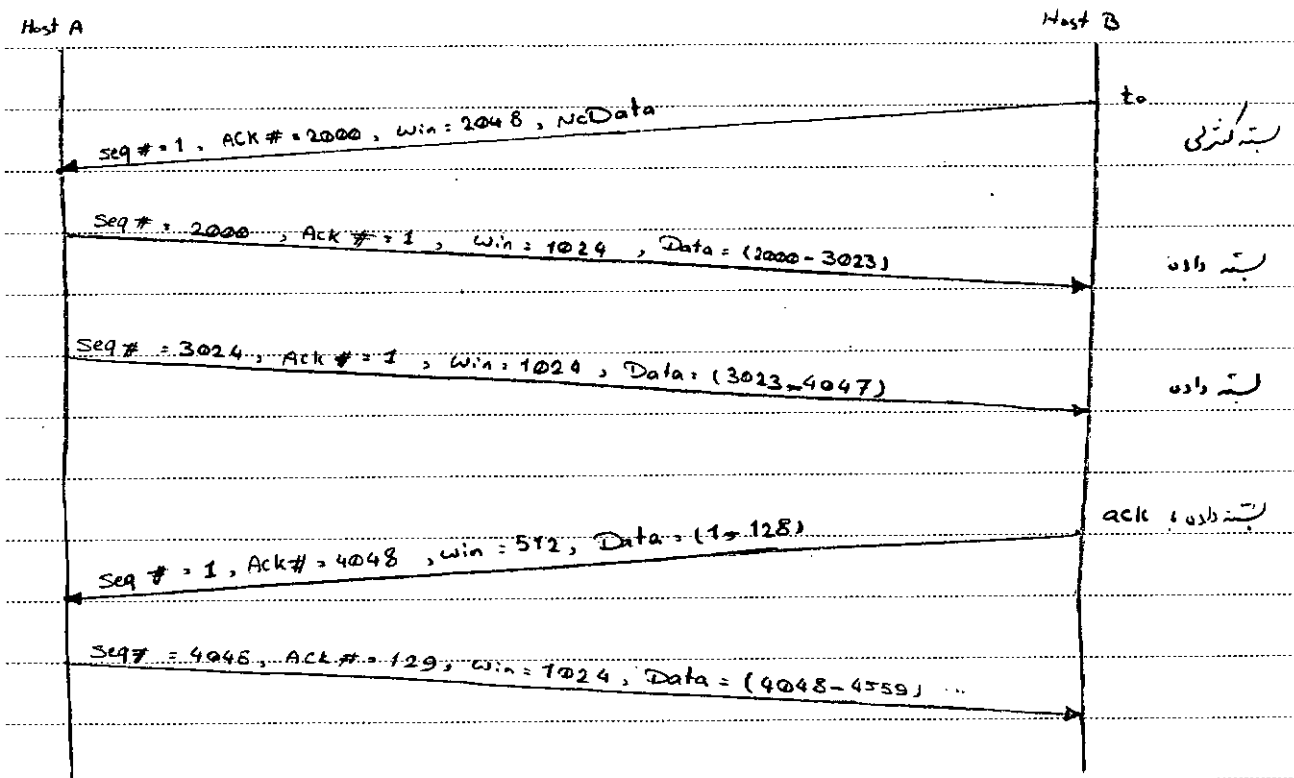 Host A
Host B
to
Seq # = 1, ACK # = 2000, Win = 2048, NoData
بسته کنترلی
Seq # = 2000, Ack # = 1, Win = 1024, Data = (2000 - 3023)
بسته داده
Seq # = 3024, Ack # = 1, Win = 1024, Data = (3023 - 4047)
بسته داده
بسته داده با ack
Seq # = 1, Ack # = 4048, win = 512, Data = (1 - 128)
Seq # = 4048, Ack # = 129, Win = 1024, Data = (4048 - 4559) ...